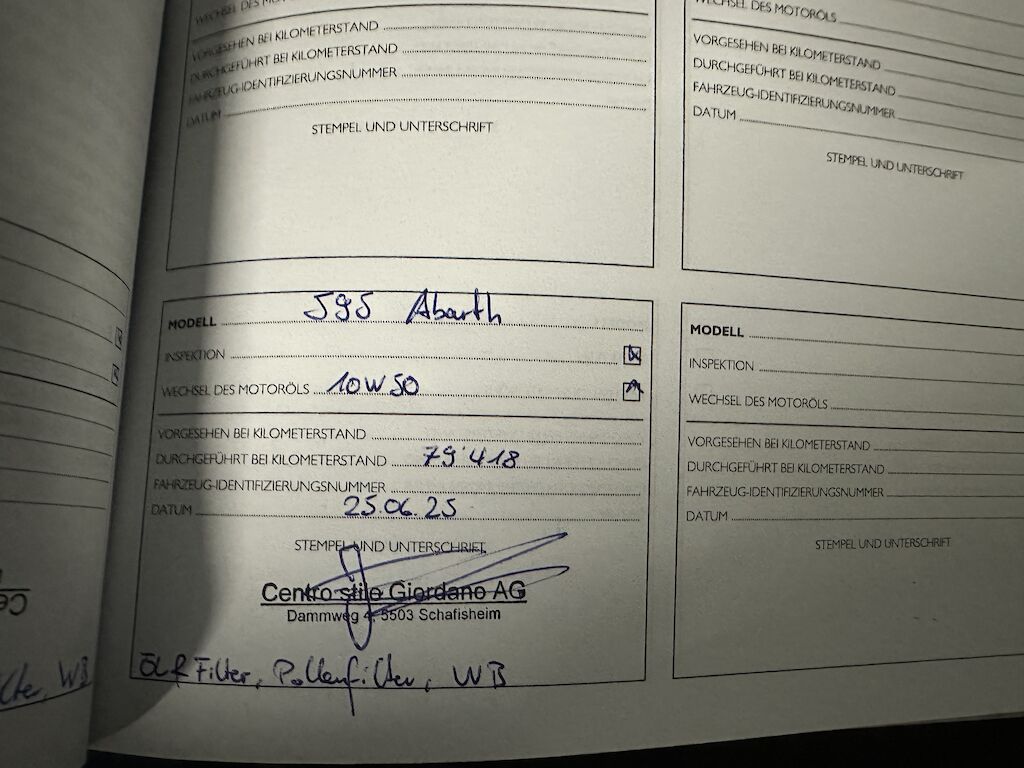 WECHSEL DES MOTORÖLS
VORGESEHEN BEI KILOMETERSTAND
DURCHGEFÜHRT BEI KILOMETERSTAND
FAHRZEUG-IDENTIFIZIERUNGSNUMMER
DATUM
STEMPEL UND UNTERSCHRIFT
WECHSEL DES MOTORÖLS
VORGESEHEN BEI KILOMETERSTAND
DURCHGEFÜHRT BEI KILOMETERSTAND
FAHRZEUG-IDENTIFIZIERUNGSNUMMER
DATUM
STEMPEL UND UNTERSCHRIFT
MODELL 595 Abarth
INSPEKTION
WECHSEL DES MOTORÖLS 10W50
VORGESEHEN BEI KILOMETERSTAND
DURCHGEFÜHRT BEI KILOMETERSTAND 79'418
FAHRZEUG-IDENTIFIZIERUNGSNUMMER
DATUM 25.06.25
STEMPEL UND UNTERSCHRIFT
Centro stile Giordano AG
Dammweg 4, 5503 Schafisheim
Filter, Pollenfilter, WB
MODELL
INSPEKTION
WECHSEL DES MOTORÖLS
VORGESEHEN BEI KILOMETERSTAND
DURCHGEFÜHRT BEI KILOMETERSTAND
FAHRZEUG-IDENTIFIZIERUNGSNUMMER
DATUM
STEMPEL UND UNTERSCHRIFT
WB